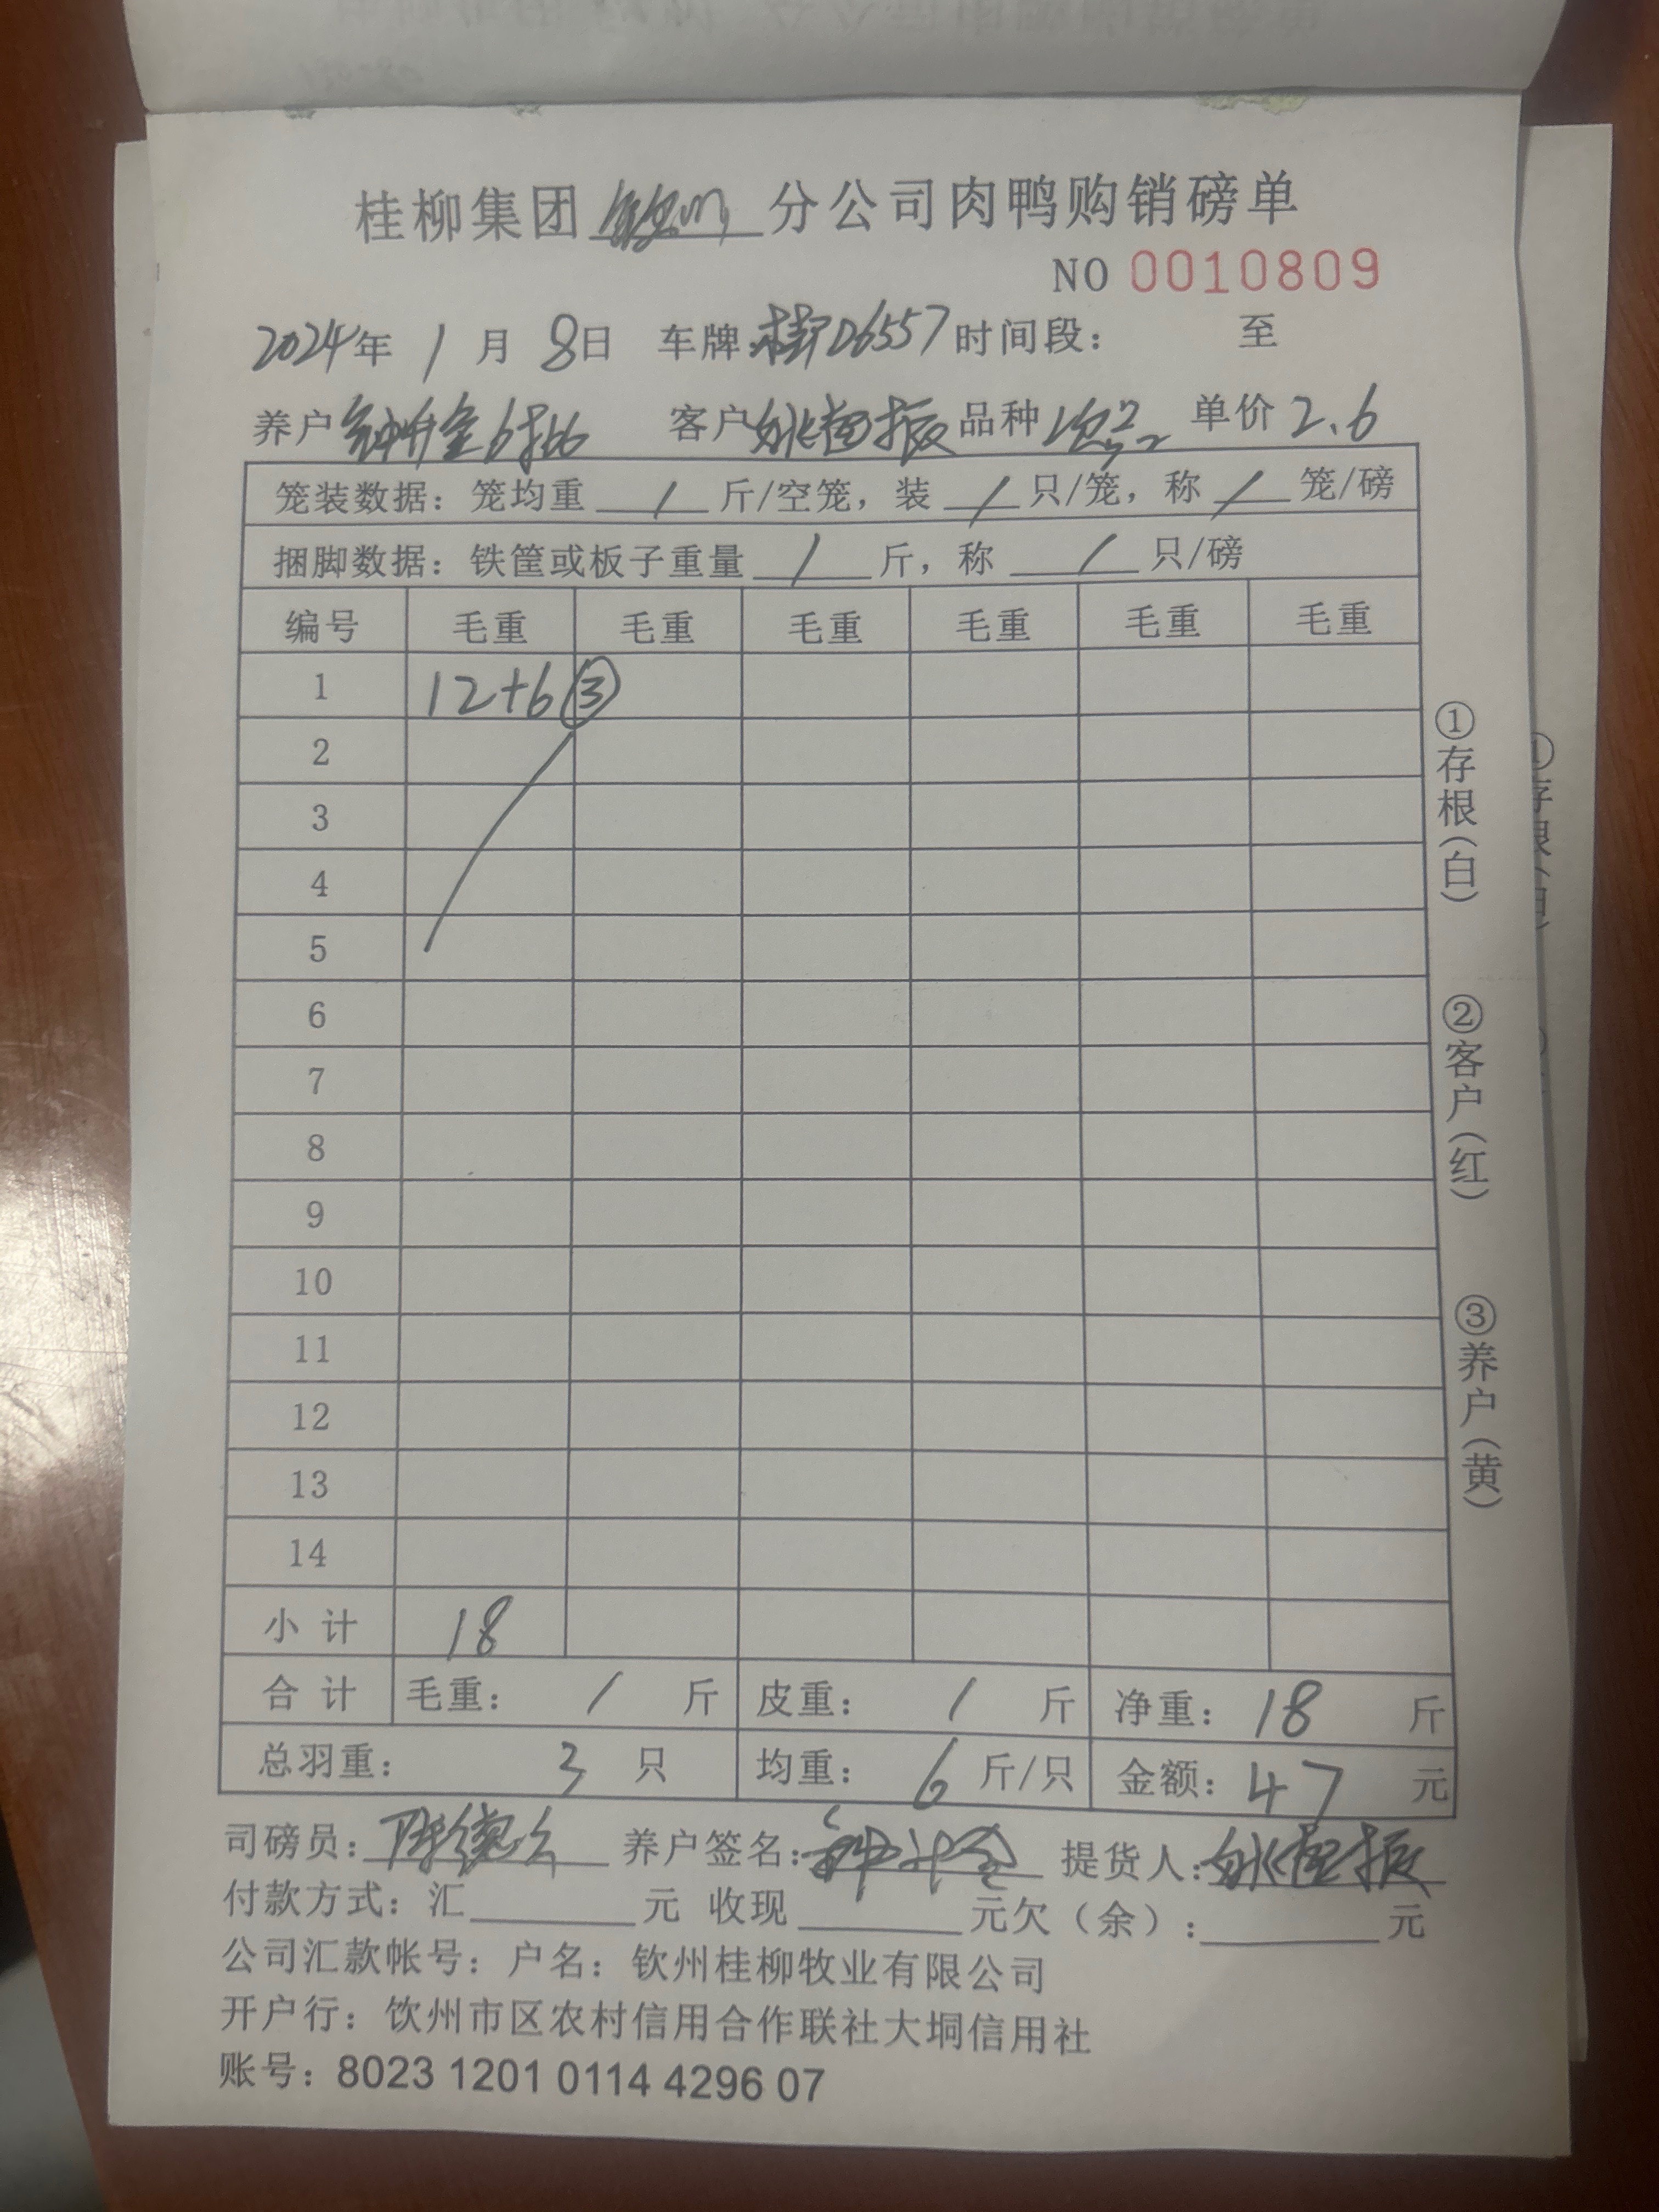 桂柳集团钦州分公司肉鸭购销磅单
NO 0010809
2024年 1月 8日 车牌:桂D6557 时间段: 至
养户 钟升金6批 客户 振 品种 单价 2.6
笼装数据: 笼均重 / 斤/空笼, 装 / 只/笼, 称 / 笼/磅
捆脚数据: 铁筐或板子重量 / 斤, 称 / 只/磅
编号 毛重 毛重 毛重 毛重 毛重 毛重
1 12+6 ③
2
3
4
5
6
7
8
9
10
11
12
13
14
小计 18
合计 毛重: / 斤 皮重: / 斤 净重: 18 斤
总羽重: 3 只 均重: 6 斤/只 金额: 47 元
司磅员: 陈 养户签名: 钟升金 提货人: 振
付款方式: 汇 元 收现 元欠(余): 元
公司汇款帐号: 户名: 钦州桂柳牧业有限公司
开户行: 饮州市区农村信用合作联社大垌信用社
账号: 8023 1201 0114 4296 07
①存根(白)
②客户(红)
③养户(黄)